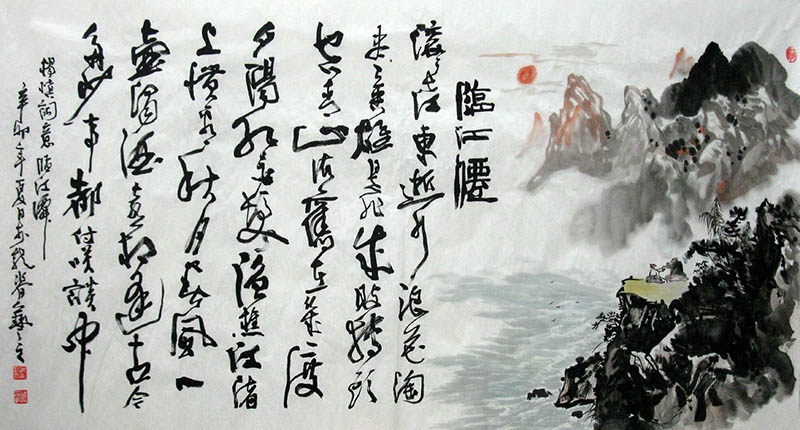 臨江僊
滚滚长江東逝水浪花淘
尽英雄是非成敗轉頭
空青山依舊在幾度
夕陽红白髮漁樵江渚
上慣看秋月春風一
壺濁酒喜相逢古今
多少事都付咲談中
楊慎詞意臨江僊
辛卯年夏日